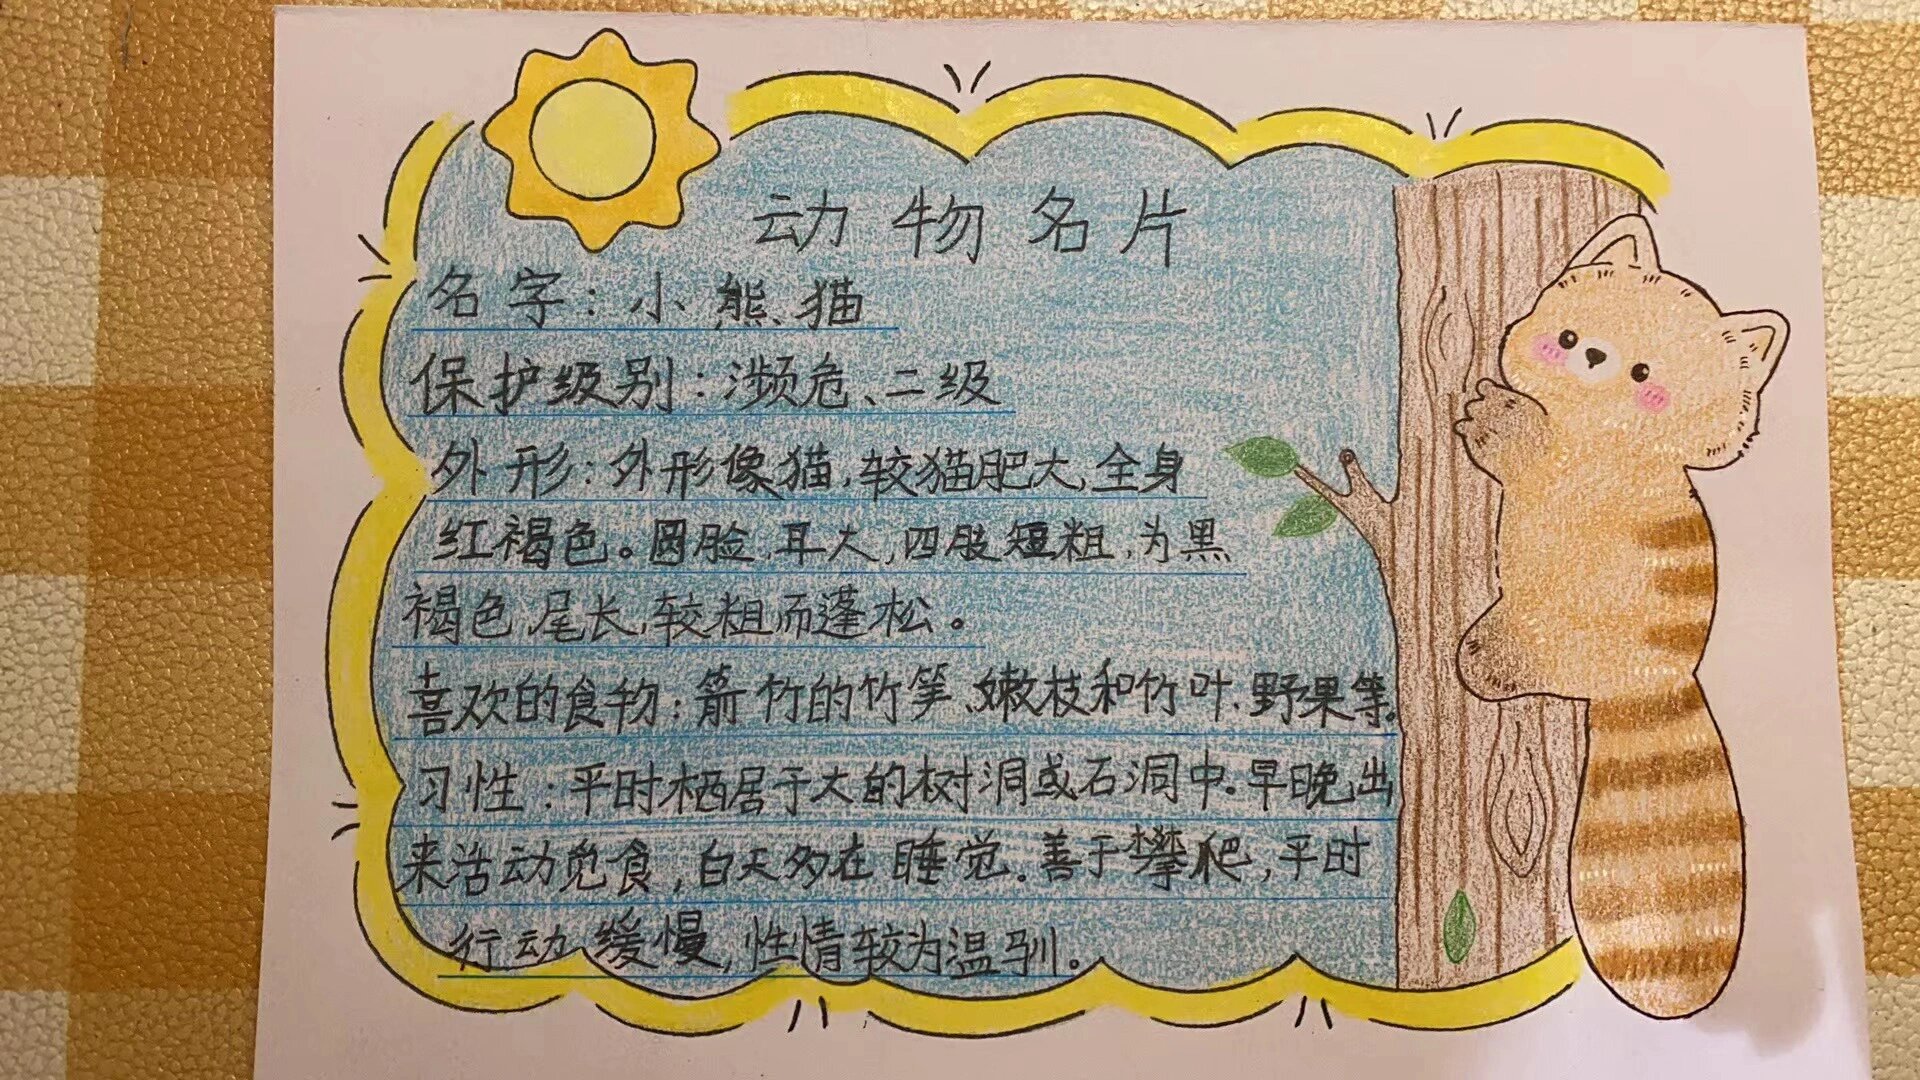 动物名片
名字：小熊猫
保护级别：濒危、二级
外形：外形像猫，较猫肥大，全身
红褐色。圆脸，耳大，四肢短粗，为黑
褐色，尾长，较粗而蓬松。
喜欢的食物：箭竹的竹笋、嫩枝和竹叶、野果等。
习性：平时栖居于大的树洞或石洞中。早晚出
来活动觅食，白天多在睡觉。善于攀爬，平时
行动缓慢，性情较为温驯。